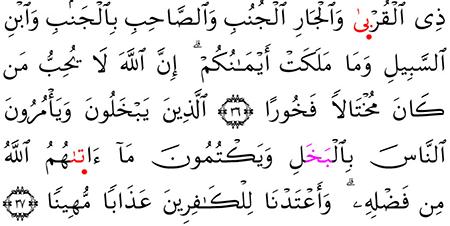 ذِى ٱلْقُرْبىٰ وَٱلْجَارِ ٱلْجُنُبِ وَٱلصَّاحِبِ بِٱلْجَنۢبِ وَٱبْنِ
ٱلسَّبِيلِ وَمَا مَلَكَتْ أَيْمَـٰنُكُمْ ۗ إِنَّ ٱللَّهَ لَا يُحِبُّ مَن
كَانَ مُخْتَالًا فَخُورًا ﴿٣٦﴾ ٱلَّذِينَ يَبْخَلُونَ وَيَأْمُرُونَ
ٱلنَّاسَ بِٱلْبَخَلِ وَيَكْتُمُونَ مَآ ءَاتىٰهُمُ ٱللَّهُ
مِن فَضْلِهِۦ ۗ وَأَعْتَدْنَا لِلْكَـٰفِرِينَ عَذَابًا مُّهِينًا ﴿٣٧﴾